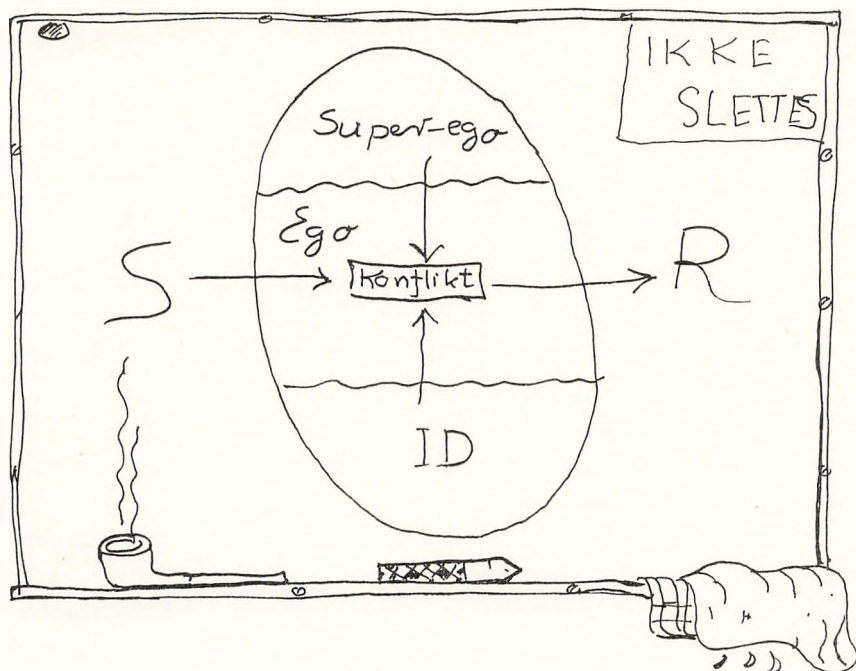 IKKE
SLETTES
Super-ego
Ego
S
Konflikt
R
ID